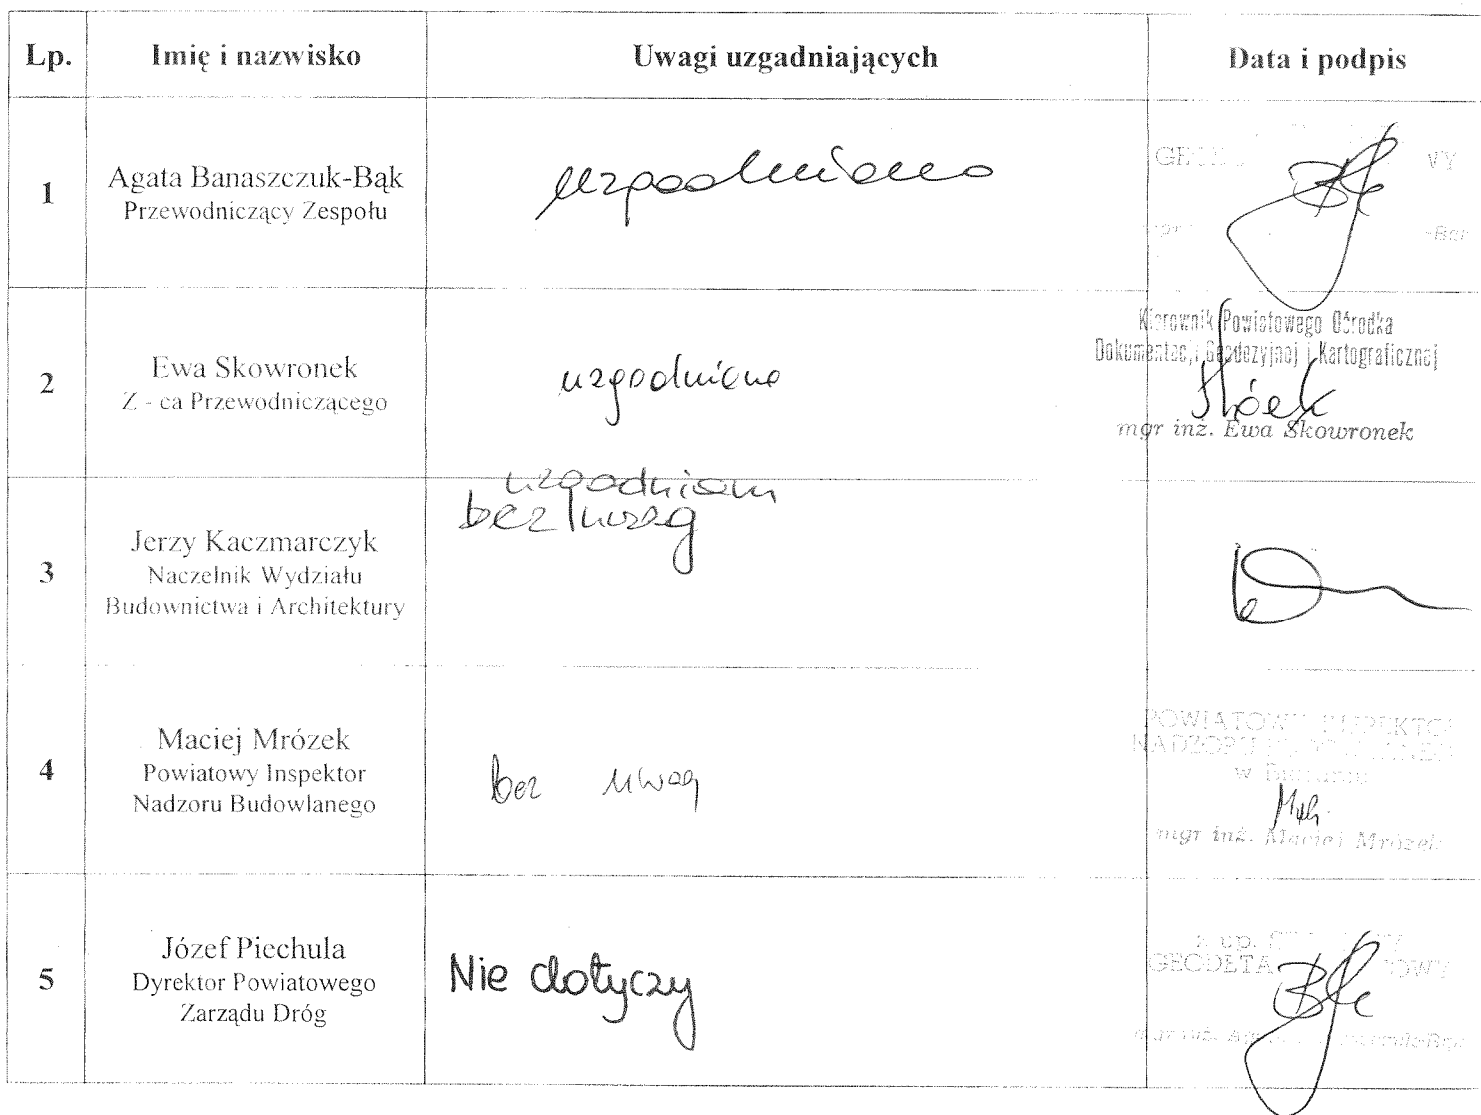 Lp. Imię i nazwisko Uwagi uzgadniających Data i podpis
1 Agata Banaszczuk-Bąk
Przewodniczący Zespołu
uzgodniono
GEO WY
-Bąk
2 Ewa Skowronek
Z - ca Przewodniczącego
uzgodniono
Kierownik Powiatowego Ośrodka
Dokumentacji Geodezyjnej i Kartograficznej
mgr inż. Ewa Skowronek
3 Jerzy Kaczmarczyk
Naczelnik Wydziału
Budownictwa i Architektury
uzgodniam
bez uwag
4 Maciej Mrózek
Powiatowy Inspektor
Nadzoru Budowlanego
bez uwag
POWIATOWY INSPEKTOR
NADZORU BUDOWLANEGO
w Bieruniu
mgr inż. Maciej Mrózek
5 Józef Piechula
Dyrektor Powiatowego
Zarządu Dróg
Nie dotyczy
z up.
GEODETA